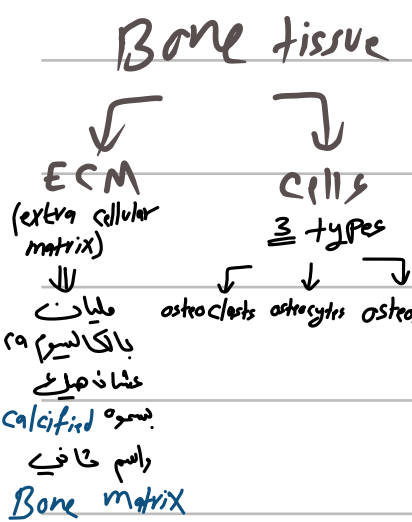 Bone tissue
ECM
(extra cellular
matrix)
مليان
بالكالسيوم ca
عشان هيك
بسموه calcified
واسم ثاني
Bone matrix
Cells
3 types
osteoclasts osteocytes osteo